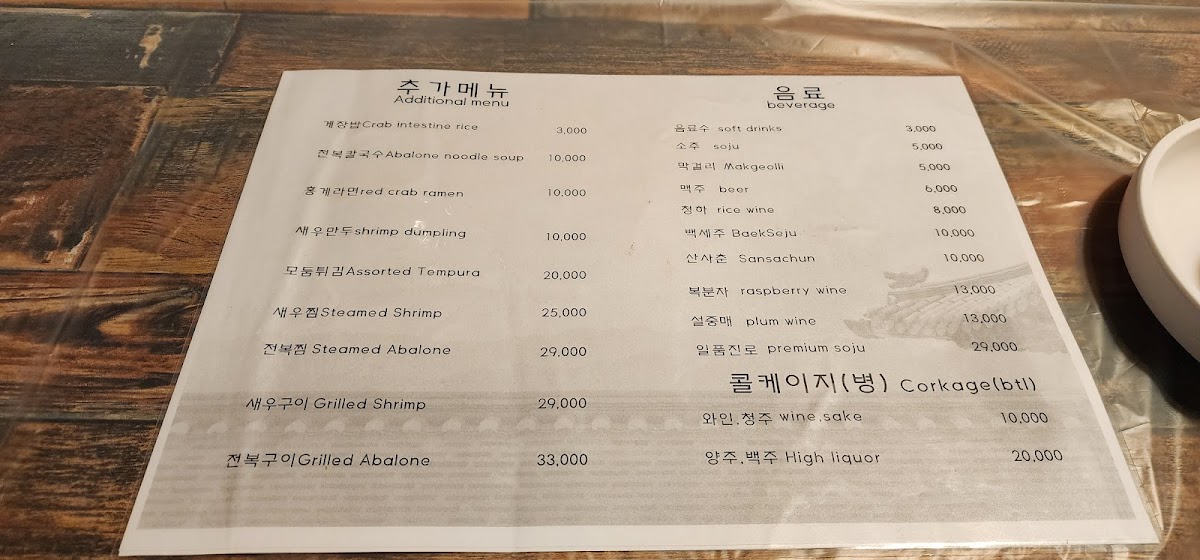 추가메뉴
Additional menu
게장밥Crab intestine rice 3,000
전복칼국수Abalone noodle soup 10,000
홍게라면red crab ramen 10,000
새우만두shrimp dumpling 10,000
모둠튀김Assorted Tempura 20,000
새우찜Steamed Shrimp 25,000
전복찜 Steamed Abalone 29,000
새우구이 Grilled Shrimp 29,000
전복구이Grilled Abalone 33,000
음료
beverage
음료수 soft drinks 3,000
소주 soju 5,000
막걸리 Makgeolli 5,000
맥주 beer 6,000
청하 rice wine 8,000
백세주 BaekSeju 10,000
산사춘 Sansachun 10,000
복분자 raspberry wine 13,000
설중매 plum wine 13,000
일품진로 premium soju 29,000
콜케이지(병) Corkage(btl)
와인,청주 wine,sake 10,000
양주,백주 High liquor 20,000